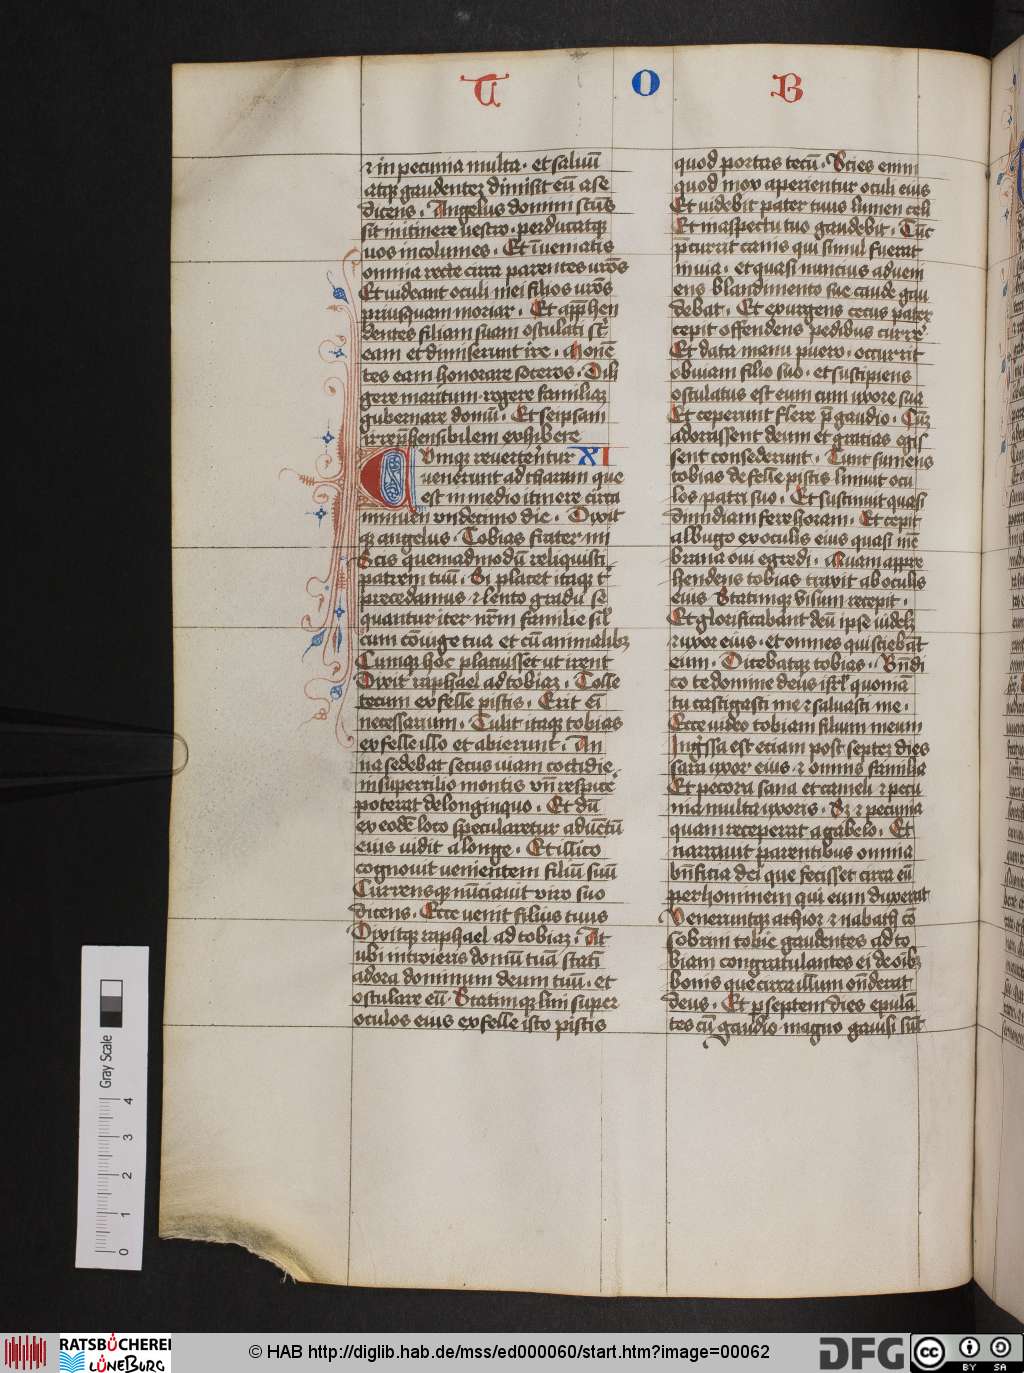 T O B
⁊ in pecunia multa. et saluū
atqꝫ gaudenteꝫ dimisit eū a se
dicens. Angelus domini sctūs
sit in itinere uestro. perducatqꝫ
uos incolumes. Et īueniatis
omnia recte circa parentes urōs
Et uideant oculi mei filios urōs
priusquam moriar. Et app̄hen
dentes filiam suam osculati sūt
eam et dimiserunt ire. Monē
tes eam honorare soceros. Dili
gere maritum. regere familiaꝫ
gubernare domū. Et seipsam
irrep̄hensibilem exhibere
Cumqꝫ reuertērtur XI
uenerunt ad charam que
est in medio itinere circa
niniuen undecimo die. Dixit
qꝫ angelus. Tobias frater mi
Scis quemadmodū reliquisti
patrem tuū. Si placet itaqꝫ tⁱ
precedamus ⁊ lento gradu se
quantur iter nr̄m familie sil̄
cum cōiuge tua et cū animalibꝫ
Cumqꝫ hoc placuisset ut irent
Dixit raphael ad tobiaꝫ. Tolle
tecum ex felle piscis. Erit ei
necessarium. Tulit itaqꝫ tobias
ex felle illo et abierunt. An
na sedebat secus uiam cottidie
in supercilio montis un̄ respice
poterat de longinquo. Et dū
ex eodē loco specularetur aduētū
eius uidit a longe. Et illico
cognouit uenientem filiū suū
Currensqꝫ nūciauit uiro suo
dicens. Ecce uenit filius tuus
Dixitqꝫ raphael ad tobiaꝫ. At
ubi introieris domū tuā statī
adora dominum deum tuū. et
osculare eū. Statimqꝫ lini super
oculos eius ex felle isto piscis
quod portas tecū. Scies enim
quod mox aperientur oculi eius
Et uidebit pater tuus lumen celi
Et in aspectu tuo gaudebit. Tūc
p̄cucurrit canis qui simul fuerat
in uia. et quasi nuncius adueni
ens blandimento sue caude gau
debat. Et exurgens cecus pater
cepit offendens pedibus curre
Et data manu puero. occurrit
obuiam filio suo. et suscipiens
osculatus est eum cum uxore sua
Et ceperunt flere p̄ gaudio. Cūqꝫ
adorassent deum et gratias egis
sent consederunt. Tunc sumens
tobias de felle piscis liniuit ocu
los patri suo. Et sustinuit quasi
dimidiam fere horam. Et cepit
albugo ex oculis eius quasi mē
brana oui egredi. Quam appre
hendens tobias traxit ab oculis
eius Statimqꝫ uisum recepit.
Et glorificabant deū ipse uidelꝫ
⁊ uxor eius. et omnes qui sciebāt
eum. Dicebatqꝫ tobias. Bn̄di
co te domine deus isrl̄ quoniā
tu castigasti me ⁊ saluasti me.
Ecce uideo tobiam filium meum
Ingr̄ssa est eciam post septeꝫ dies
sara uxor eius ⁊ omnis familia
Et pecora sana et cameli ⁊ pecu
nia multa uxoris. Sꝫ ⁊ pecunia
quam receperat a gabelo. Et
narrauit parentibus omnia
bn̄ficia dei que fecisset circa eū
per hominem qui eum duxerat
Veneruntqꝫ achior ⁊ nabath cō
sobrini tobie gaudentes ad to
biam congratulantes ei de oībꝫ
bonis que circa illum on̄derat
deus. Et p septem dies epulā
tes cū gaudio magno gauisi sūt
Gray Scale
0 1 2 3 4
RATSBÜCHEREI
LÜNEBURG
© HAB http://diglib.hab.de/mss/ed000060/start.htm?image=00062
DFG
cc BY SA